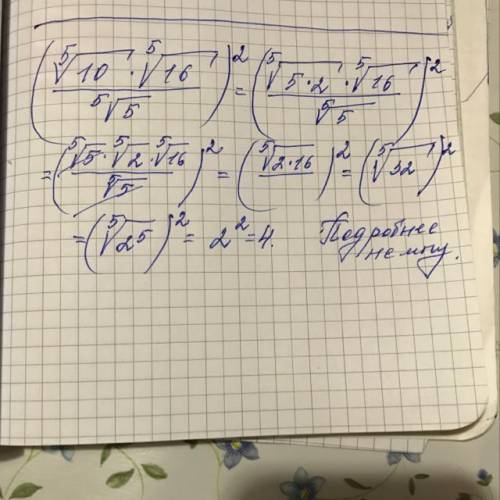 (⁵√10 · ⁵√16 / ⁵√5)² = (⁵√5·2 · ⁵√16 / ⁵√5)²
= (⁵√5 · ⁵√2 · ⁵√16 / ⁵√5)² = (⁵√2·16)² = (⁵√32)²
= (⁵√2⁵)² = 2² = 4. Подробнее
не могу.